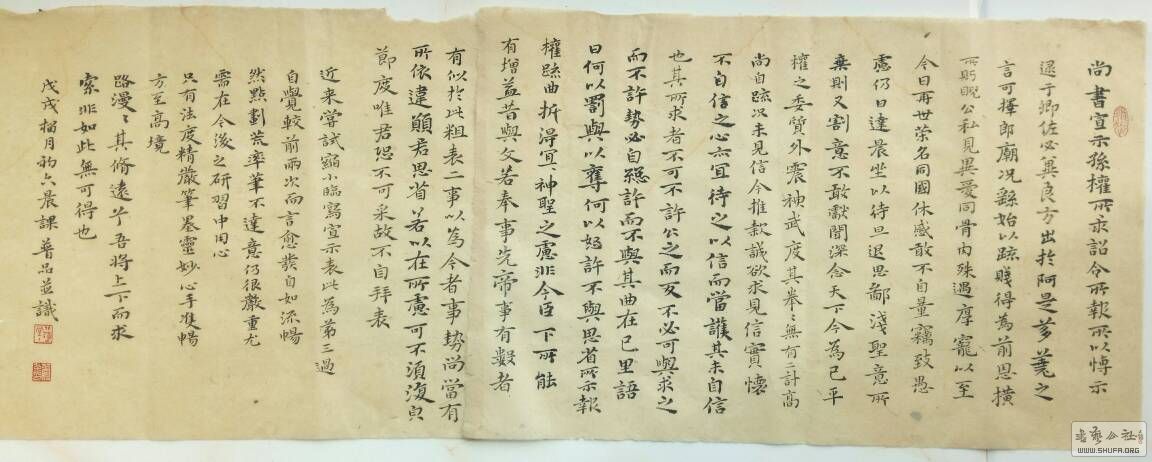 尚書宣示孫權所求詔令所報所以博示
逮于卿佐必冀良方出於阿是芻蕘之
言可擇郎廟况繇始以疏賤得為前恩橫
所眄睨公私見異愛同骨肉殊遇厚寵以至
今日再世榮名同國休慼敢不自量竊致愚
慮仍日達晨坐以待旦退思鄙淺聖意所
棄則又割意不敢獻聞深念天下今為已平
權之委質外震神武度其拳〻無有二計高
尚自疏况未見信今推款誠欲求見信實懷
不自信之心亦宜待之以信而當護其未自信
也其所求者不可不許許之而反不必可與求之
而不許勢必自絕許而不與其曲在己里語
曰何以罰與以奪何以怒許不與思省所示報
權疏曲折得宜宜神聖之慮非今臣下所能
有增益昔與文若奉事先帝事有數者
有似於此粗表二事以為今者事勢尚當有
所依違願君思省若以在所慮可不須復皃
節度唯君恐不可采故不自拜表
近来嘗試縮小臨寫宣示表此為第三過
自覺較前兩次而言愈發自如流暢
然點劃荒率筆不達意仍很嚴重尤
需在今後之研習中用心
只有法度精嚴筆墨靈妙心手雙暢
方至高境
路漫〻其脩遠兮吾將上下而求
索非如此無可得也
戊戌榴月初六晨課普品並識
書藝公社
WWW.SHUFA.ORG